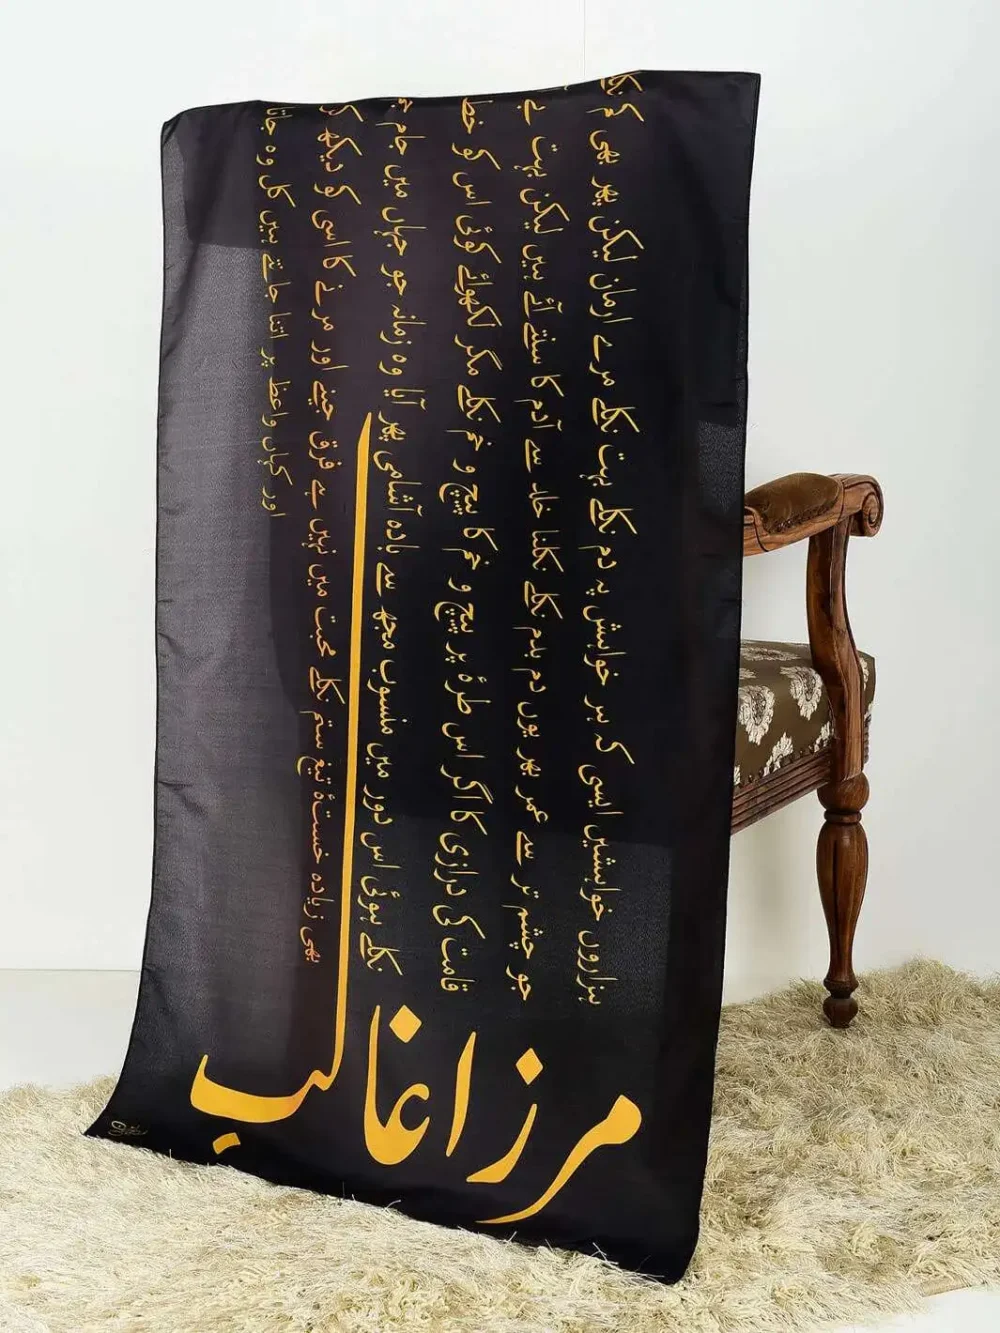 ہزاروں خواہشیں ایسی کہ ہر خواہش پہ دم نکلے بہت نکلے مرے ارمان لیکن پھر بھی کم نکلے
جو چشم تر سے عمر بھر یوں دم بدم نکلے نکلنا خلد سے آدم کا سنتے آئے ہیں لیکن بہت
قامت کی درازی کا اگر اس طرۂ پر پیچ و خم کا پیچ و خم نکلے مگر لکھوائے کوئی اس کو خط
نکلے ہوئی اس دور میں منسوب مجھ سے بادہ آشامی پھر آیا وہ زمانہ جو جہاں میں جام
بھی زیادہ خستۂ تیغ ستم نکلے محبت میں نہیں ہے فرق جینے اور مرنے کا اسی کو دیکھ
اور کہاں واعظ پر اتنا جانتے ہیں کل وہ جاتا
مرزا غالب